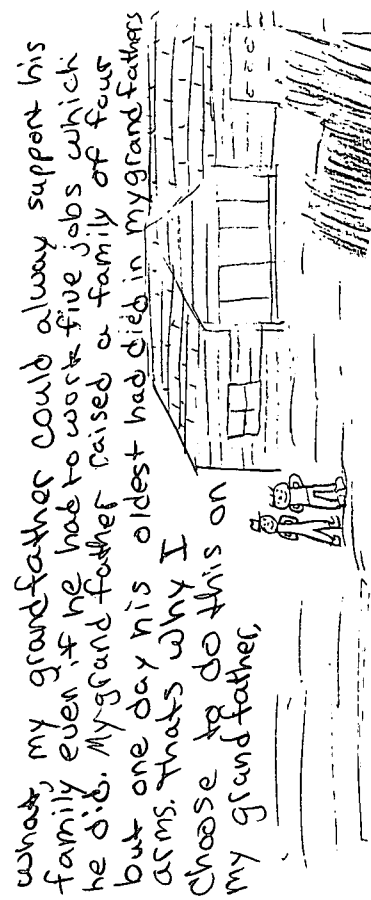 what, my grandfather could alway support his
family even if he had to work five jobs which
he did. My grand father raised a family of four
but one day his oldest had died in my grandfathers
arms. Thats why I
choose to do this on
my grand father,